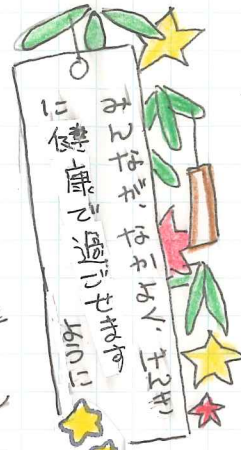 みんなが、なかよく、げんき
に健康で過ごせます
ように